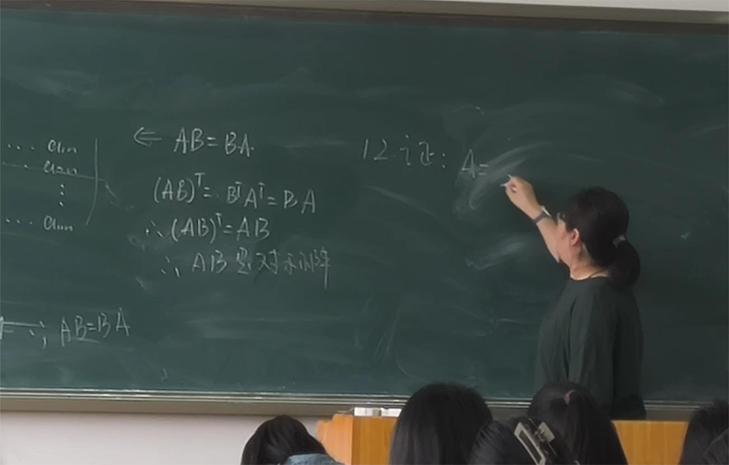 ... a₁ₙ
... a₂ₙ
⋮ ⋮
... aₙₙ
∴ AB=BA
⇐ AB=BA.
(AB)ᵀ=BᵀAᵀ=BA
∴(AB)ᵀ=AB
∴ AB是对称阵
12.证: A=